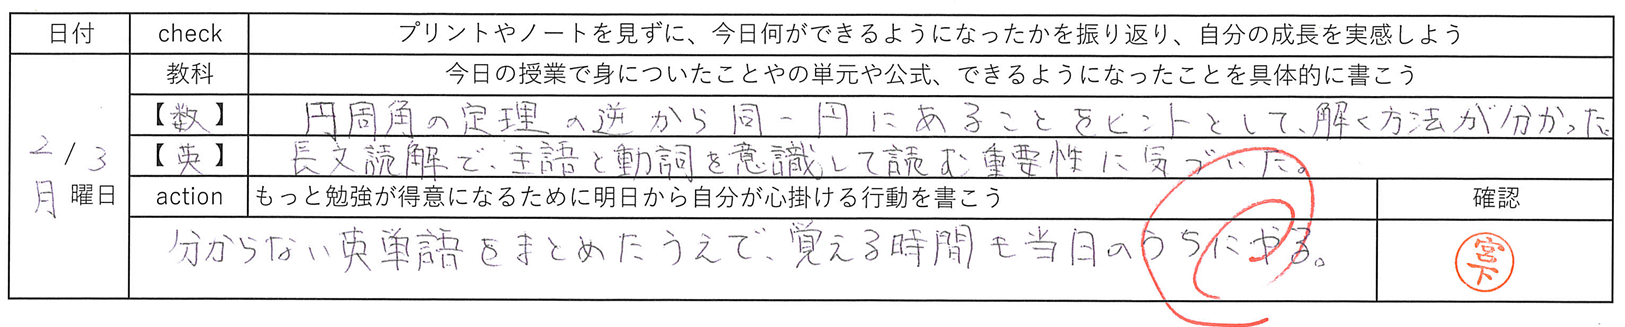 日付 check プリントやノートを見ずに、今日何ができるようになったかを振り返り、自分の成長を実感しよう
教科 今日の授業で身についたことやの単元や公式、できるようになったことを具体的に書こう
【数】 円周角の定理の逆から同一円にあることをヒントとして、解く方法が分かった。
2/3
月曜日
【英】 長文読解で、主語と動詞を意識して読む重要性に気づいた。
action もっと勉強が得意になるために明日から自分が心掛ける行動を書こう 確認
分からない英単語をまとめたうえで、覚える時間も当日のうちにやる。
宮下